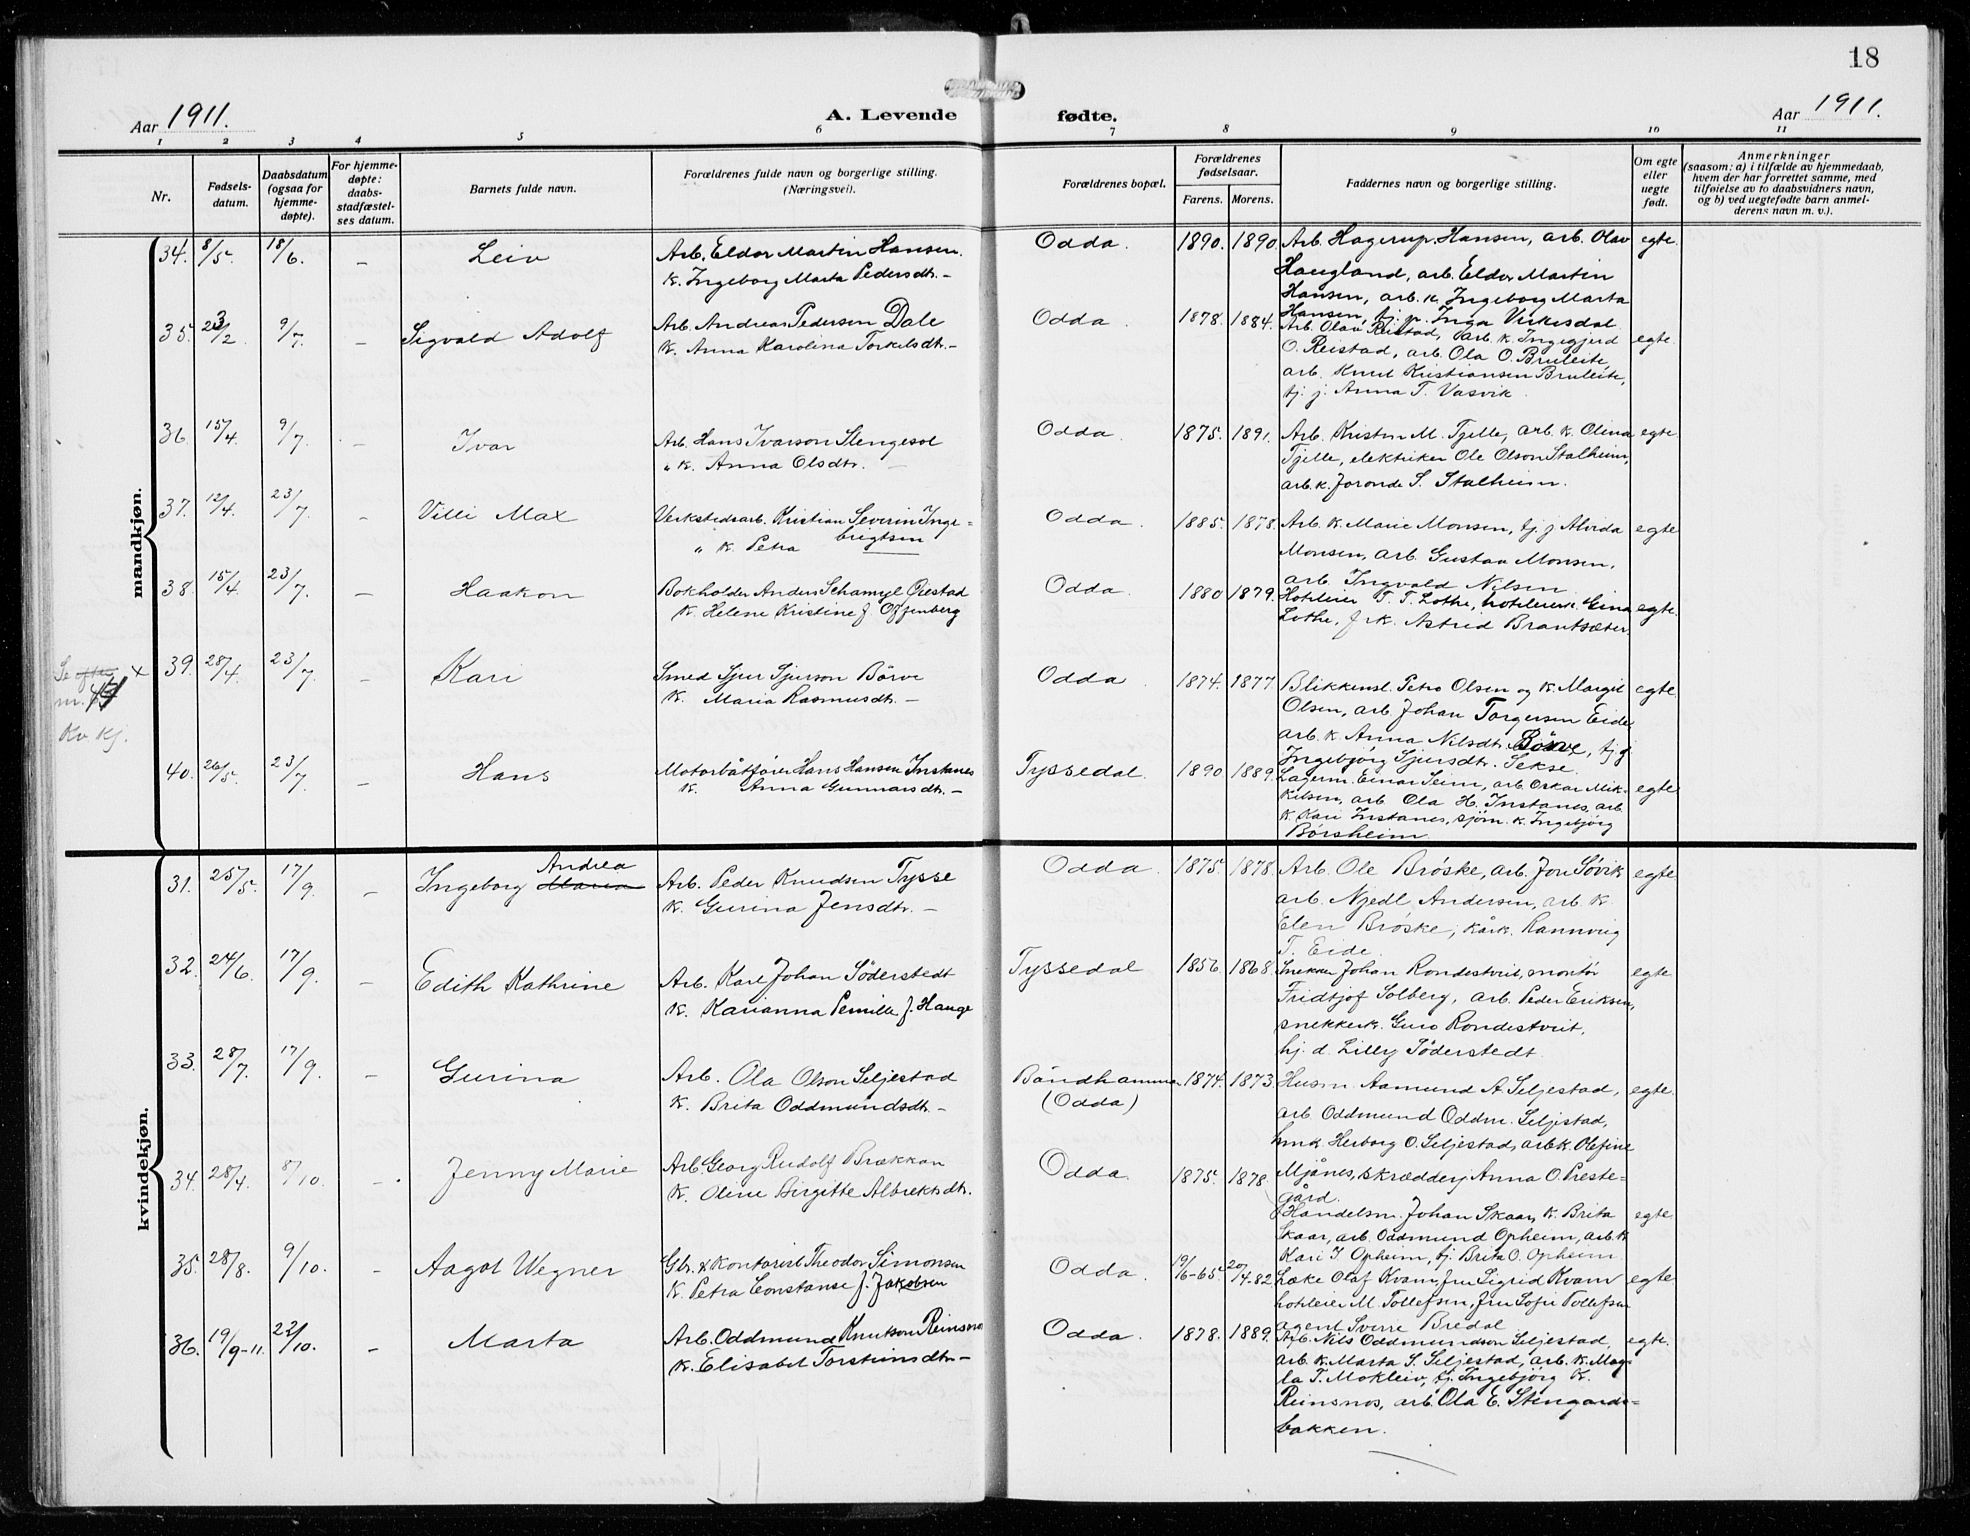 18
Aar 1911.
A. Levende fødte.
Aar 1911.
1 2 3 4 5 6 7 8 9 10 11
Nr.
Fødsels-
datum.
Daabsdatum
(ogsaa for
hjemme-
døpte).
For hjemme-
døpte:
daabs-
stadfæstel-
ses datum.
Barnets fulde navn.
Forældrenes fulde navn og borgerlige stilling.
(Næringsvei).
Forældrenes bopæl.
Forældrenes
fødselsaar.
Farens. Morens.
Faddernes navn og borgerlige stilling.
Om egte
eller
uegte
født.
Anmerkninger
(saasom: a) i tilfælde av hjemmedaab,
hvem der har forrettet samme, med
tilføielse av to daabsvidners navn,
og b) ved uegtefødte barn anmel-
derens navn m. v.).
mandkjøn.
34. 8/5. 18/6. – Leiv
Arb. Eldor Martin Hansen.
K. Ingeborg Marta Pedersdtr. –
Odda. 1890. 1890.
Arb. Hagerup Hansen, arb. Olav
Haugland, arb. Eldor Martin
Hansen, arb. k. Ingeborg Marta
Hansen, tj. p. Inga Virkesdal.
egte.
35. 23/2 9/7. – Sigvald Adolf
Arb. Andreas Pedersen Dale
K. Anna Karolina Torkelsdtr. –
Odda. 1878. 1884.
Arb. Olav Reistad, arb. k. Ingegjerd
O. Reistad, arb. Ola O. Bruleite,
arb. Knut Kristiansen Bruleite,
tj. j. Anna T. Vasvik.
egte.
36. 15/4. 9/7. – Ivar
Arb. Hans Ivarson Slengesol
" K. Anna Olsdtr. –
Odda. 1875. 1891.
Arb. Kristen M. Tjelle, arb. k. Olina
Tjelle, elektriker Ole Olson Stalheim,
arb. k. Joronde S. Stalheim.
egte.
37. 12/4. 23/7. – Villi Max
Verkstedsarb. Kristian Severin Inge-
brigtsen
" K. Petra
Odda. 1885. 1878.
Arb. k. Marie Monsen, tj. j Alvida
Monsen, arb. Gustav Monsen,
arb. Ingvald Nilsen
egte
38. 15/4. 23/7. – Haakon
Bokholder Anders Schamyl Øiestad
K. Helene Kristine f. Offenberg
Odda. 1880 1879.
Hoteleier T. T. Lothe, hoteleierk. Gina
Lothe, frk. Astrid Brantsæter.
egte.
Se
Kv Kj.
39. 28/4. 23/7. – Kari
Smed Sjur Sjurson Børve
K. Maria Rasmusdtr. –
Odda 1874. 1877.
Blikkensl. Petro Olsen og k. Margit
Olsen, arb. Johan Torgersen Eide
arb. k. Anna Nilsdtr. Børve, tj j
Ingebjørg Sjursdtr. Sekse.
egte.
40. 26/5. 23/7. – Hans
Motorbåtfører Hans Hansen Instanes
K. Anna Gunnarsdtr. –
Tyssedal. 1890 1889.
Lagerm. Einar Seim, arb. Oskar Mik-
kelsen, arb. Ola H. Instanes, arb.
k. Kari Instanes, sjøm. k. Ingebjørg
Børsheim.
egte
kvindekjøn.
31. 25/5. 17/9. – Ingeborg Maria
Andrea
Arb. Peder Knudsen Tysse
K. Gurina Jensdtr. –
Odda. 1875. 1878.
Arb. Ole Brøske, arb. Jon Søvik
arb. Njedl Andersen, arb. k.
Elen Brøske, kårk. Rannveig
T. Eide.
egte
32. 24/6. 17/9. – Edith Kathrine
Arb. Karl Johan Söderstedt
K. Karianna Pernille f. Hauge
Tyssedal 1856. 1868.
Snekker Johan Rondestveit, montør
Fridtjof Solberg, arb. Peder Eriksen,
snekkerk. Guro Rondestveit,
hj. d. Lilly Söderstedt.
egte
33. 28/7. 17/9. – Gurina
Arb. Ola Olson Seljestad
K. Brita Oddmundsdtr. –
Bändhammar
(Odda)
1874. 1873.
Husm Aamund A. Seljestad,
arb. Oddmund Oddm. Seljestad,
hmk Herborg O. Seljestad, arb.k. Olefine
Mjånes, skrædderj Anna O. Preste-
gård.
egte.
34. 28/4. 8/10. – Jenny Marie
Arb. Georg Rudolf Brækkan
K. Oline Birgitte Albrektsdtr.
Odda. 1875. 1878.
Handelsm. Johan Skaar, K. Brita
Skaar, arb. Oddmund Opheim, arb. k
Kari I. Opheim, tj. Brita O. Opheim
egte.
35. 28/8. 9/10. – Aagot Wegner
Gbr. & Kontorist Theodor Simonsen
K. Petra Constanse f. Jakobsen
Odda. 19/16-65. 20/4-82
Læke Olaf Kvam, fru Sigrid Kvam
hoteleier M. Tollefsen, fru Sofie Tollefsen
agent Sverre Bredal
egte
36. 19/9-11. 22/10. – Marta
Arb. Oddmund Knutson Reinsnos
K. Elisabet Torsteinsdtr –
Odda. 1878. 1889.
Arb. Nils Oddmundson Seljestad,
arb. k. Marta S. Seljestad, arb. k. Mag-
la T. Mokleiv, tj. Ingebjørg K.
Reinsnos, arb. Ola E. Steingards-
bakken.
egte.